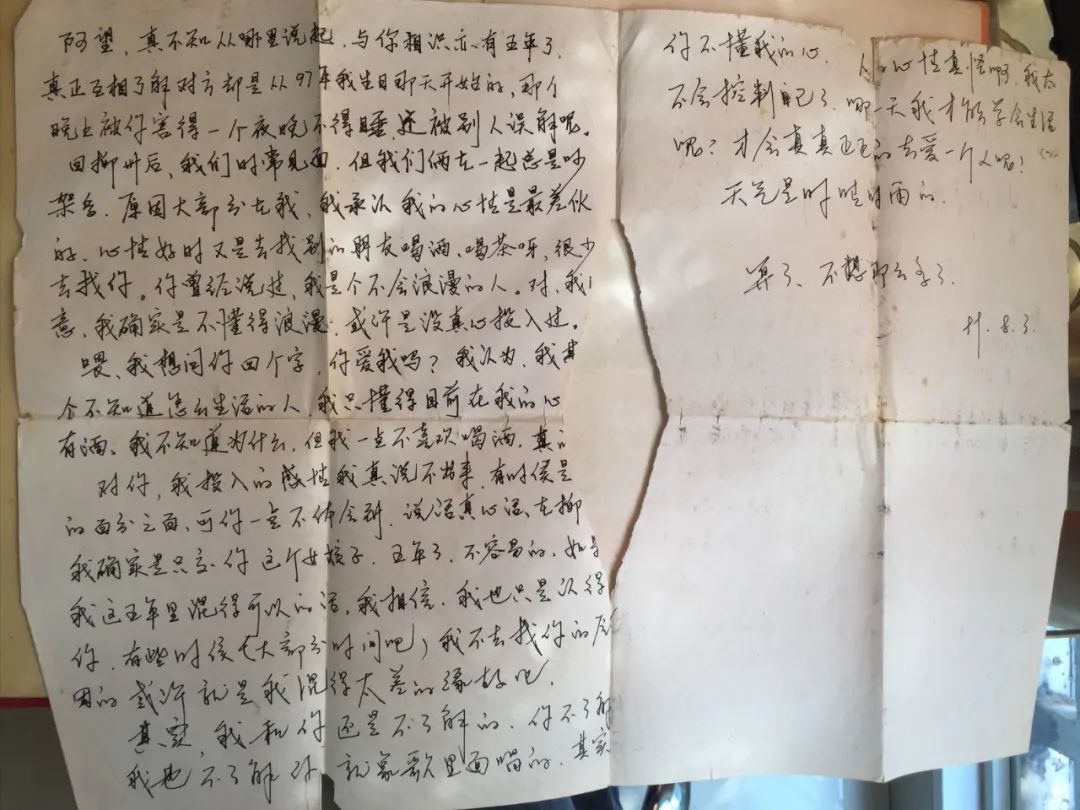 阿望，真不知从哪里说起，与你相识亦有五年了，
真正互相了解对方却是从97年我生日那天开始的，那个
晚上被你害得一个夜晚不得睡还被别人误解呢。
回柳州后，我们时常见面，但我们俩在一起总是吵
架多，原因大部分在我，我承认我的心情是最差伙
的，心情好时又是去找别的朋友喝酒、喝茶呀，很少
去找你。你曾经说过，我是个不会浪漫的人。对，我
意，我确实是不懂得浪漫，或许是没真心投入过。
喂，我想问你四个字，你爱我吗？我认为，我其
个不知道怎么生活的人，我只懂得目前在我的心
有酒、我不知道为什么，但我一点不喜欢喝酒，真的
对你，我投入的感情我真说不出来，有时候是
的百分之百，可你一点不体会到，说活真心话，在柳
我确实是只交你这个女孩子，五年了，不容易的，如果
我这五年里混得可以的话，我相信，我也只是认得
你，有些时候（大部分时间吧）我不去找你的原
因的或许就是我混得太差的缘故吧，
其实，我和你还是不了解的，你不了解
我也不了解你，就象歌里面唱的，其实
你不懂我的心，人的心情真怪啊，我太
不会控制自己了，哪一天我才能学会生活
呢？才会真真正正的去爱一个人呢？
天气是时晴时雨的，
算了、不想那么多了
8.3.